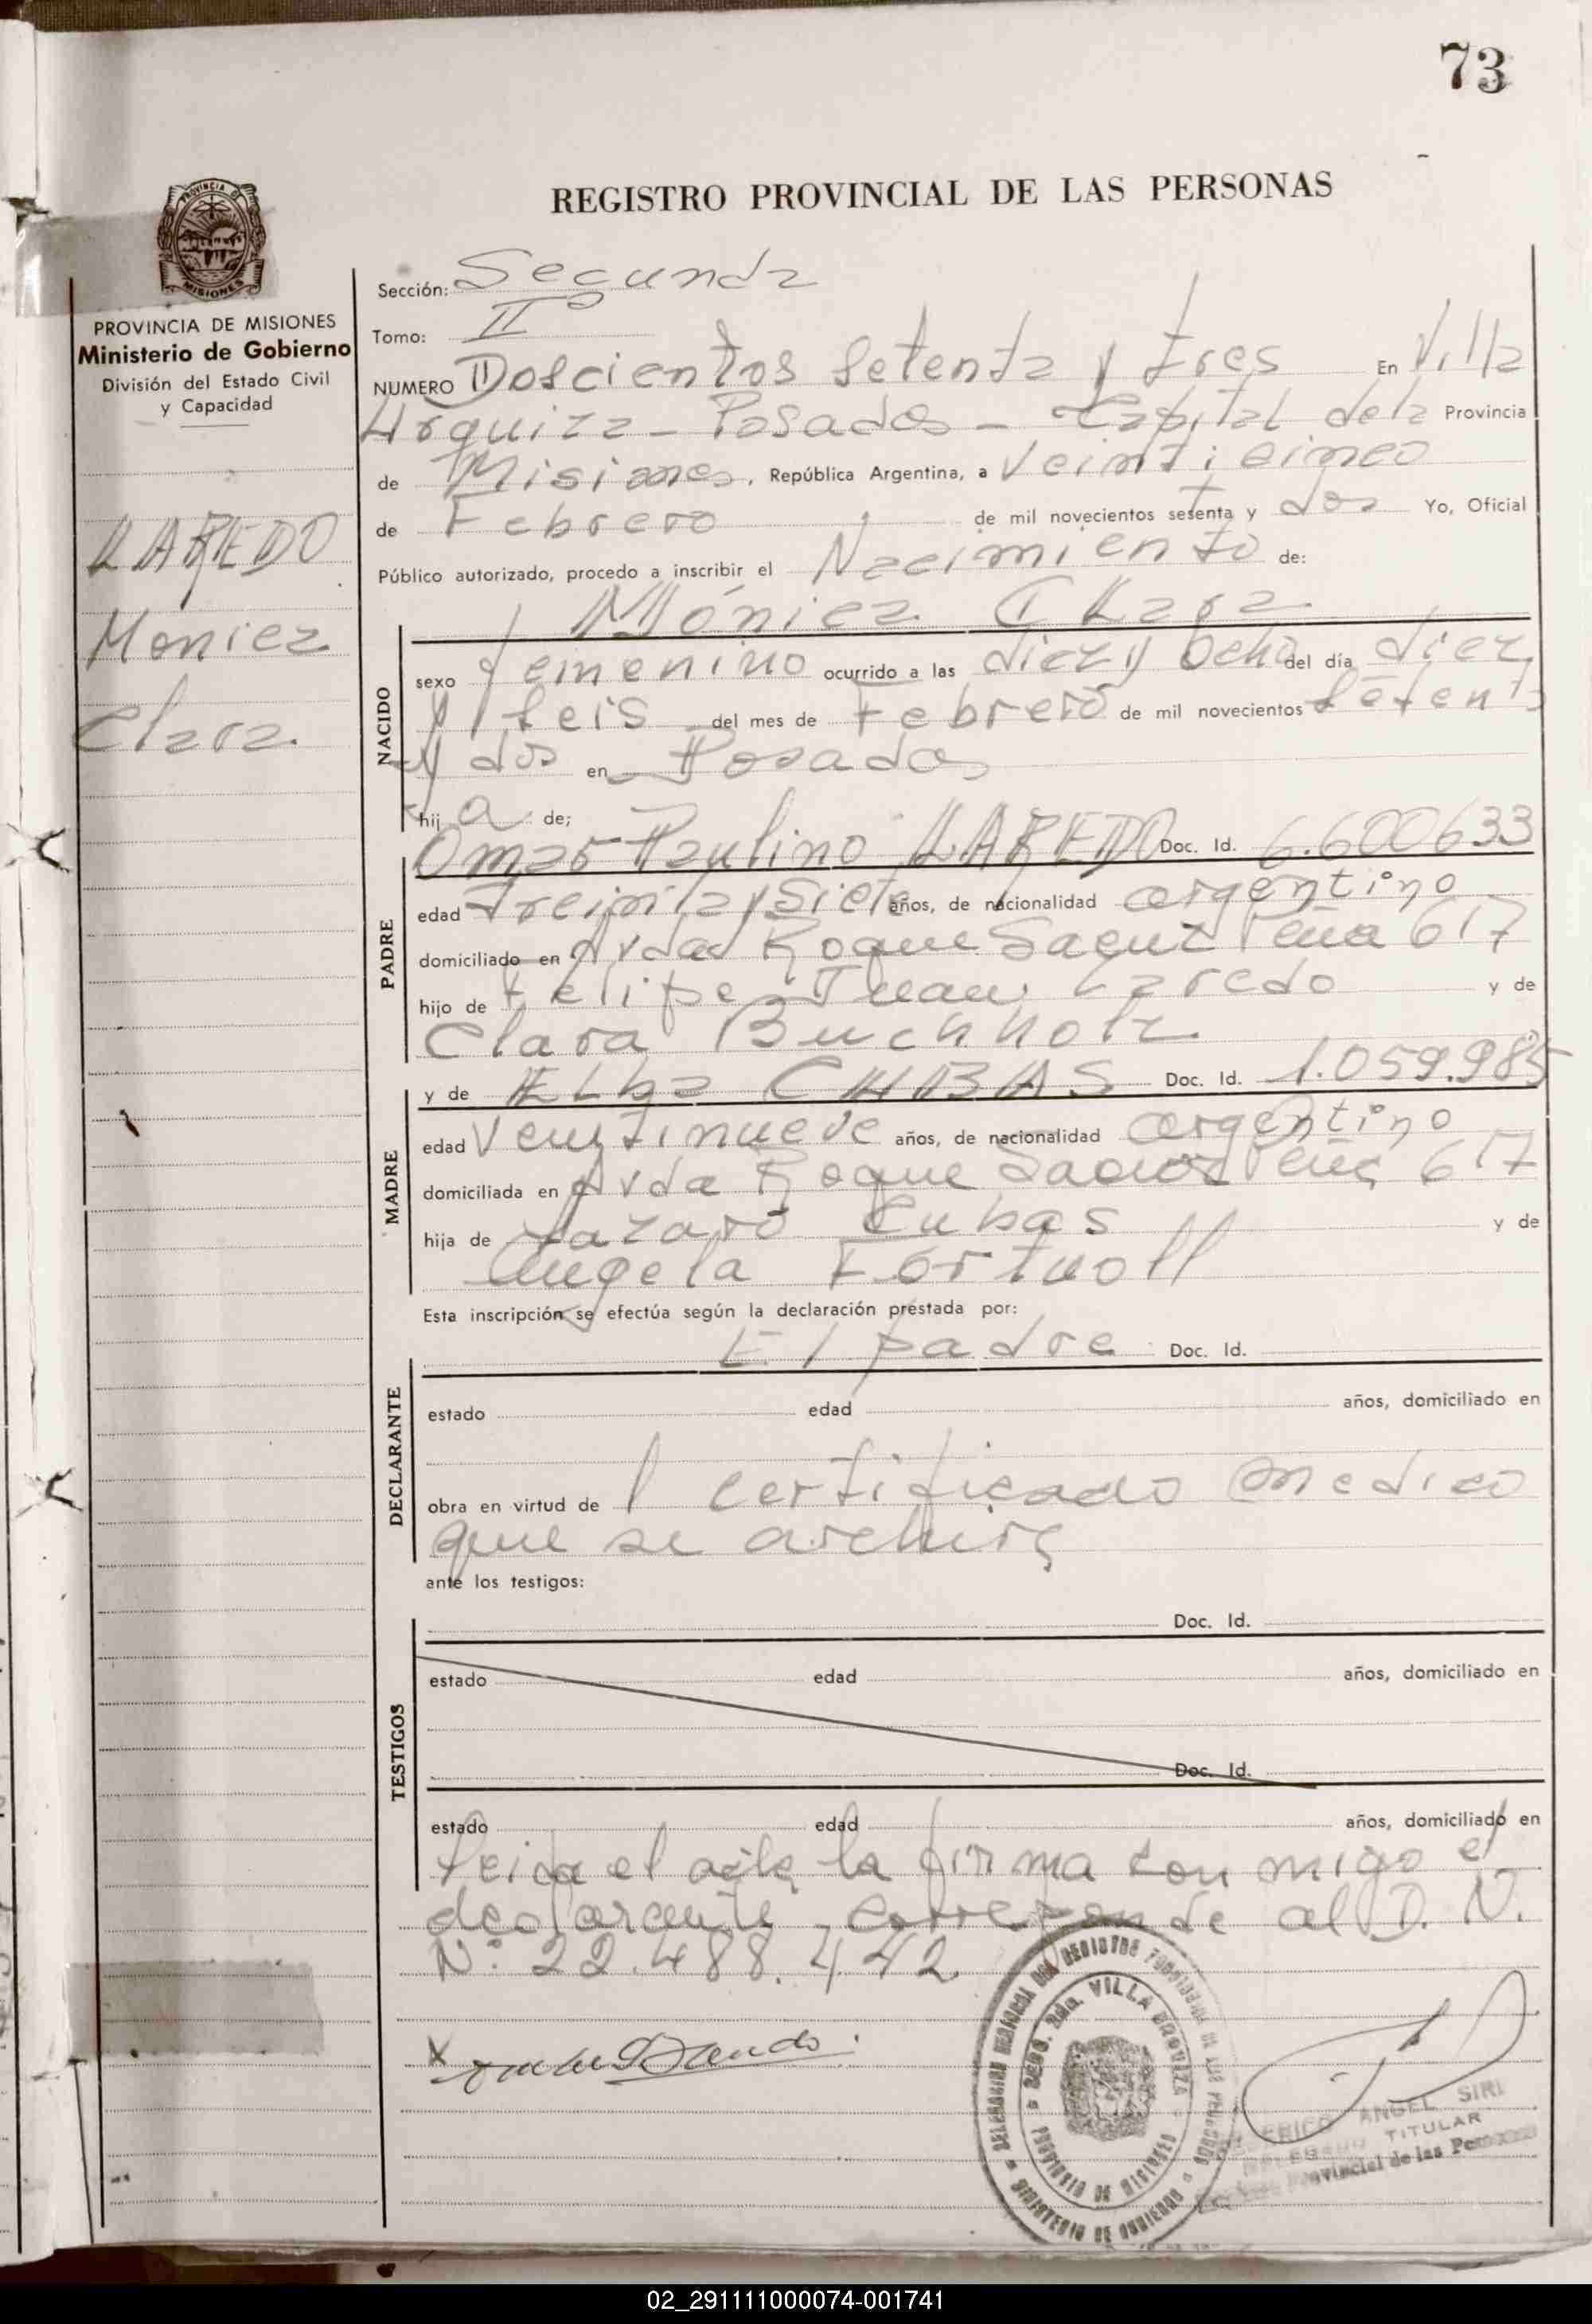 73
REGISTRO PROVINCIAL DE LAS PERSONAS
PROVINCIA DE MISIONES
MISIONES
PROVINCIA DE MISIONES
Ministerio de Gobierno
División del Estado Civil
y Capacidad
LAREDO
Monica
Clara.
Sección: Segunda
Tomo: IIº
NUMERO Doscientos Setenta y tres En Villa
Urquiza - Posadas - Capital de la Provincia
de Misiones, República Argentina, a Veinticinco
de Febrero de mil novecientos setenta y dos Yo, Oficial
Público autorizado, procedo a inscribir el Nacimiento de:
Mónica Clara
NACIDO
sexo femenino ocurrido a las diez y ocho del día diez
y seis del mes de Febrero de mil novecientos setenta
y dos en Posadas
hij a de;
Omar Paulino LAREDO Doc. Id. 6.600633
PADRE
edad Treinta y Siete años, de nacionalidad argentino
domiciliado en Avda Roque Saenz Peña 617
hijo de Felipe Juan Laredo y de
Clara Buchholz
y de Elba CUBAS Doc. Id. 1.059.985
MADRE
edad Veintinueve años, de nacionalidad argentino
domiciliada en Avda Roque Saenz Peña 617
hija de Lazaro Cubas y de
Angela
Esta inscripción se efectúa según la declaración prestada por:
El padre Doc. Id.
DECLARANTE
estado edad años, domiciliado en
obra en virtud de l certificado medico
que se archiva
ante los testigos:
Doc. Id.
TESTIGOS
estado edad años, domiciliado en
Doc. Id.
estado edad años, domiciliado en
Leida el acta la firma con migo el
declarante, corresponde al D. N.
N: 22.488.442
DELEGACION REGIONAL DEL REGISTRO PROVINCIAL DE LAS PERSONAS
SECC. 2da. VILLA URQUIZA
PROVINCIA DE MISIONES
MINISTERIO DE GOBIERNO
ANGEL SIRI
TITULAR
Provincial de las Personas
02_291111000074-001741